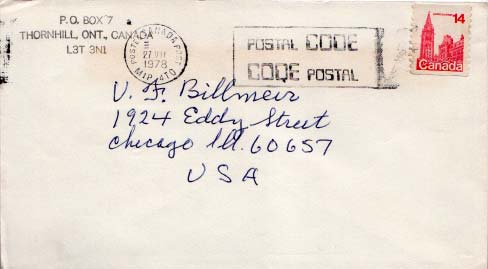 P.O. BOX 7
THORNHILL, ONT., CANADA
L3T 3N1
POSTES CANADA POST
27 VII
1978
MIP 410
POSTAL CODE
CODE POSTAL
14
Canada
V. F. Billmeir
1924 Eddy Street
Chicago Ill. 60657
USA